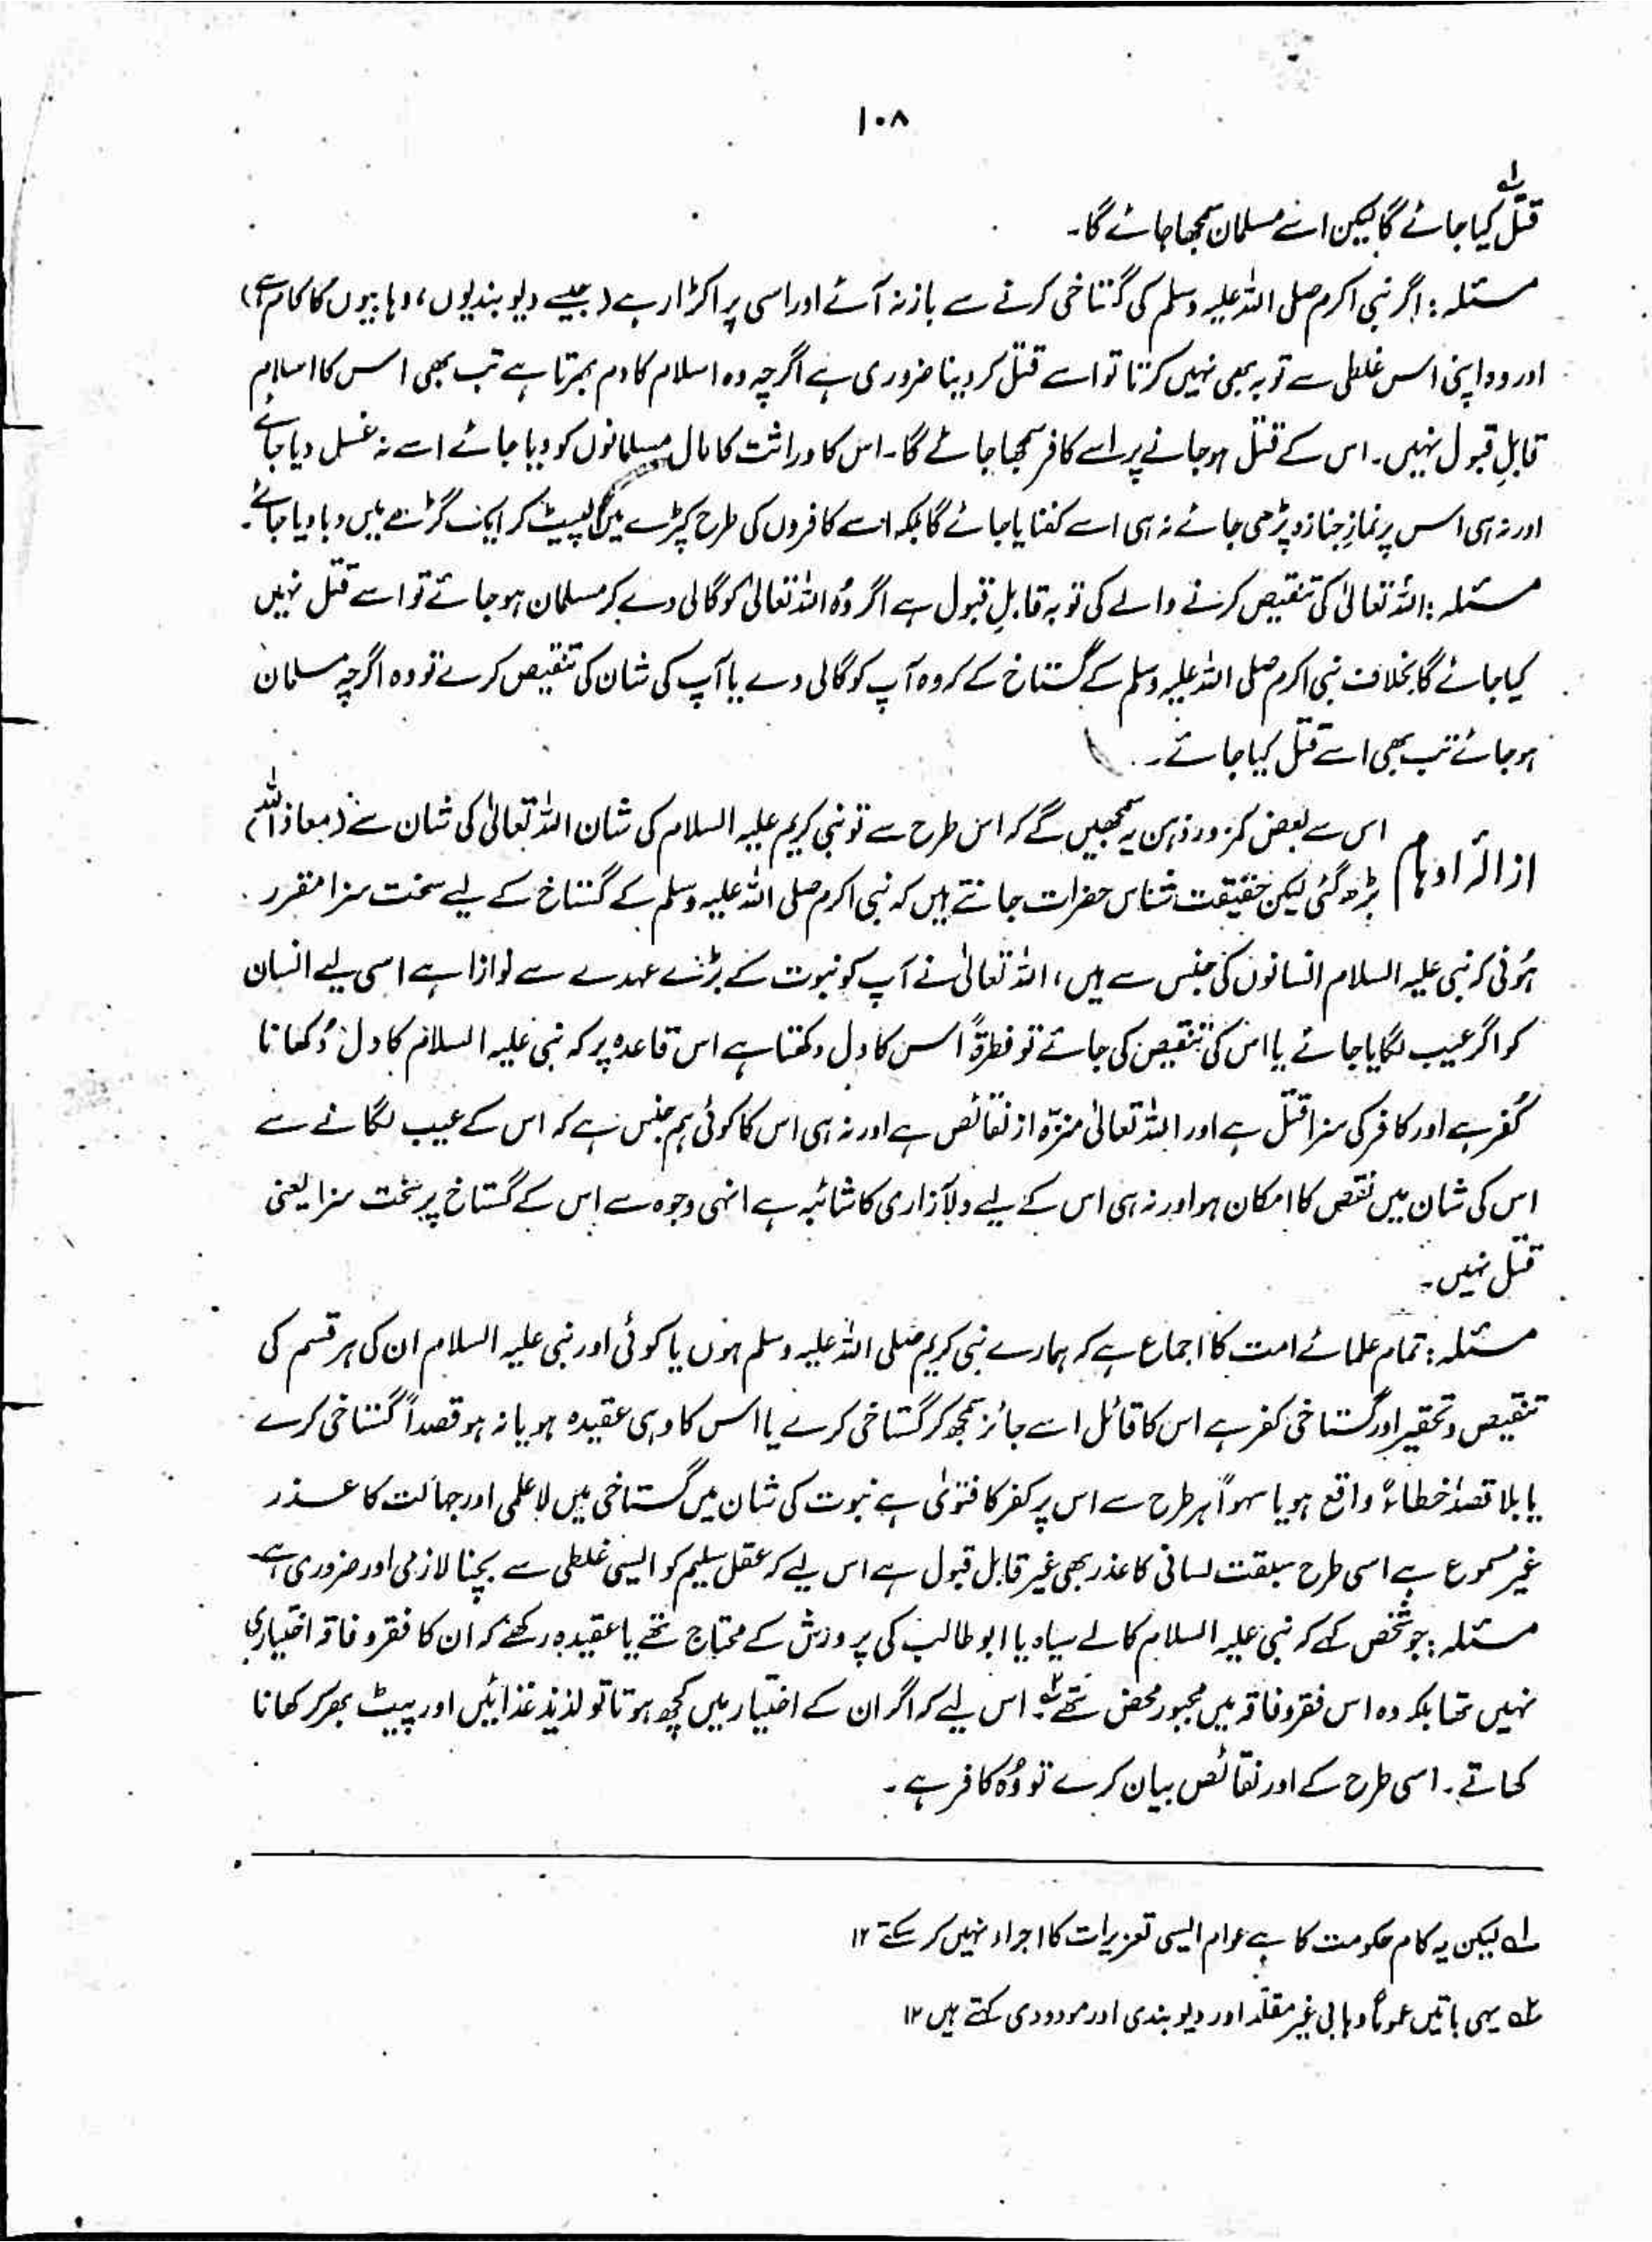 ۱۰۸
قتل۱ کیا جائے گا لیکن اسے مسلمان سمجھا جائے گا۔
مسئلہ : اگر نبی اکرم صلی اللہ علیہ وسلم کی گستاخی کرنے سے باز نہ آئے اور اسی پر اکڑا رہے (جیسے دیوبندیوں، وہابیوں کا کام ہے)
اور وہ اپنی اس غلطی سے توبہ بھی نہیں کرتا تو اسے قتل کر دینا ضروری ہے اگرچہ وہ اسلام کا دم بھرتا ہے تب بھی اس کا اسلام
قابلِ قبول نہیں۔ اس کے قتل ہو جانے پر اسے کافر سمجھا جائے گا۔ اس کا وراثت کا مال مسلمانوں کو دیا جائے اسے نہ غسل دیا جائے
اور نہ ہی اس پر نمازِ جنازہ پڑھی جائے نہ ہی اسے کفنایا جائے گا بلکہ اسے کافروں کی طرح کپڑے میں لپیٹ کر ایک گڑھے میں دبا دیا جائے۔
مسئلہ : اللہ تعالیٰ کی تنقیص کرنے والے کی توبہ قابلِ قبول ہے اگر وُہ اللہ تعالیٰ کو گالی دے کر مسلمان ہو جائے تو اسے قتل نہیں
کیا جائے گا بخلاف نبی اکرم صلی اللہ علیہ وسلم کے گستاخ کے کہ وہ آپ کو گالی دے یا آپ کی شان کی تنقیص کرے تو وہ اگرچہ مسلمان
ہو جائے تب بھی اسے قتل کیا جائے۔
ازالۂ اوہام اس سے بعض کمزور ذہن یہ سمجھیں گے کہ اس طرح سے تو نبی کریم علیہ السلام کی شان اللہ تعالیٰ کی شان سے (معاذ اللہ)
بڑھ گئی لیکن حقیقت شناس حضرات جانتے ہیں کہ نبی اکرم صلی اللہ علیہ وسلم کے گستاخ کے لیے سخت سزا مقرر
ہُوئی کہ نبی علیہ السلام انسانوں کی جنس سے ہیں، اللہ تعالیٰ نے آپ کو نبوت کے بڑے عہدے سے نوازا ہے اسی لیے انسان
کو اگر عیب لگایا جائے یا اس کی تنقیص کی جائے تو فطرۃً اس کا دل دکھتا ہے اس قاعدہ پر کہ نبی علیہ السلام کا دل دُکھانا
کُفر ہے اور کافر کی سزا قتل ہے اور اللہ تعالیٰ منزّہ از نقائص ہے اور نہ ہی اس کا کوئی ہم جنس ہے کہ اس کے عیب لگانے سے
اس کی شان میں نقص کا امکان ہو اور نہ ہی اس کے لیے دلآزاری کا شائبہ ہے انہی وجوہ سے اس کے گستاخ پر سخت سزا یعنی
قتل نہیں۔
مسئلہ : تمام علمائے امت کا اجماع ہے کہ ہمارے نبی کریم صلی اللہ علیہ وسلم ہوں یا کوئی اور نبی علیہ السلام ان کی ہر قسم کی
تنقیص و تحقیر اور گستاخی کفر ہے اس کا قائل اسے جائز سمجھ کر گستاخی کرے یا اس کا وہی عقیدہ ہو یا نہ ہو قصداً گستاخی کرے
یا بلا قصد خطاءً واقع ہو یا سہواً ہر طرح سے اس پر کفر کا فتویٰ ہے نبوت کی شان میں گستاخی میں لاعلمی اور جہالت کا عذر
غیر مسموع ہے اسی طرح سبقت لسانی کا عذر بھی غیر قابل قبول ہے اس لیے کہ عقل سلیم کو ایسی غلطی سے بچنا لازمی اور ضروری ہے۔
مسئلہ : جو شخص کہے کہ نبی علیہ السلام کالے سیاہ یا ابو طالب کی پرورش کے محتاج تھے یا عقیدہ رکھے کہ ان کا فقر و فاقہ اختیاری
نہیں تھا بلکہ وہ اس فقر و فاقہ میں مجبور محض تھے۲۔ اس لیے کہ اگر ان کے اختیار میں کچھ ہوتا تو لذیذ غذائیں اور پیٹ بھر کر کھانا
کھاتے۔ اسی طرح کے اور نقائص بیان کرے تو وُہ کافر ہے۔
۱؎ لیکن یہ کام حکومت کا ہے عوام ایسی تعزیرات کا اجراء نہیں کر سکتے ۱۲
۲؎ یہی باتیں عموماً وہابی غیر مقلّد اور دیوبندی اور مودودی کہتے ہیں ۱۲